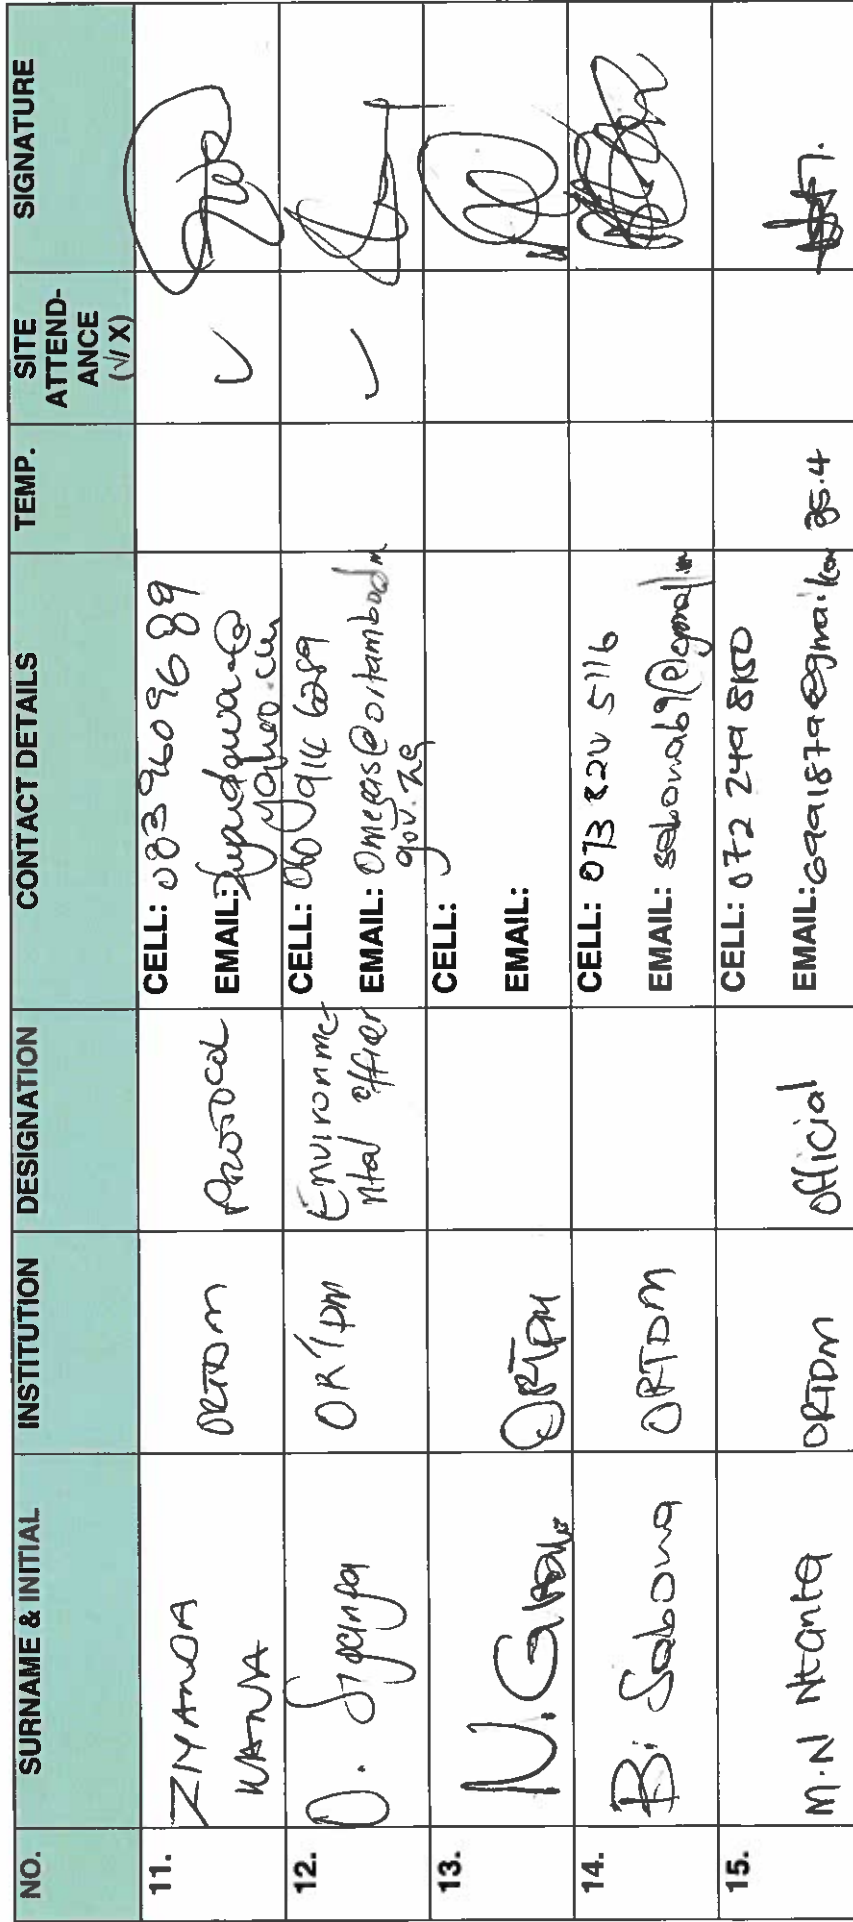 NO. SURNAME & INITIAL INSTITUTION DESIGNATION CONTACT DETAILS TEMP. SITE ATTEND-ANCE (√/ X) SIGNATURE
11. ZIYANDA WANA ORTDM Protocol CELL: 083 960 96 89
EMAIL: yahoo.com
12. O. ORTDM Environmental officer CELL: 060 914 6289
EMAIL: Omegas@ortambodm
gov.za
13. N. ORTDM CELL:
EMAIL:
14. B. Sabona ORTDM CELL: 073 820 5116
EMAIL:
15. M.N Ntanta ORTDM Official CELL: 072 249 8150
EMAIL: 6991879@gmail.com 35.4